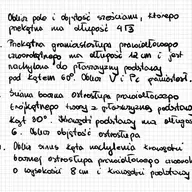 Oblicz pole i objętość sześcianu, którego
przekątna ma długość 4√3
Przekątna graniastosłupa prawidłowego
czworokątnego ma długość 12 cm i jest
nachylona do płaszczyzny podstawy
pod kątem 60°. Oblicz V i Pc graniast.
Ściana boczna ostrosłupa prawidłowego
trójkątnego tworzy z płaszczyzną podstawy
kąt 30°. Krawędź podstawy ma długość
6. Oblicz objętość ostrosłupa
Oblicz sinus kąta nachylenia krawędzi
bocznej ostrosłupa prawidłowego
o wysokości 8 cm i krawędzi podstawy